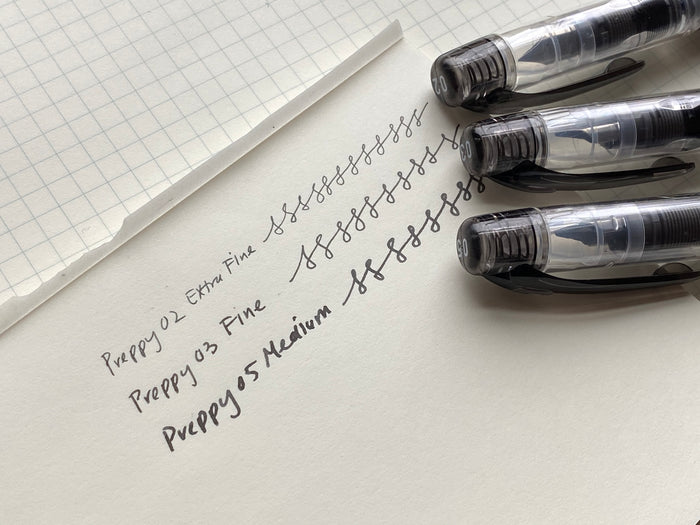 Preppy 02 Extra Fine
Preppy 03 Fine
Preppy 05 Medium
0.2
0.3
0.5